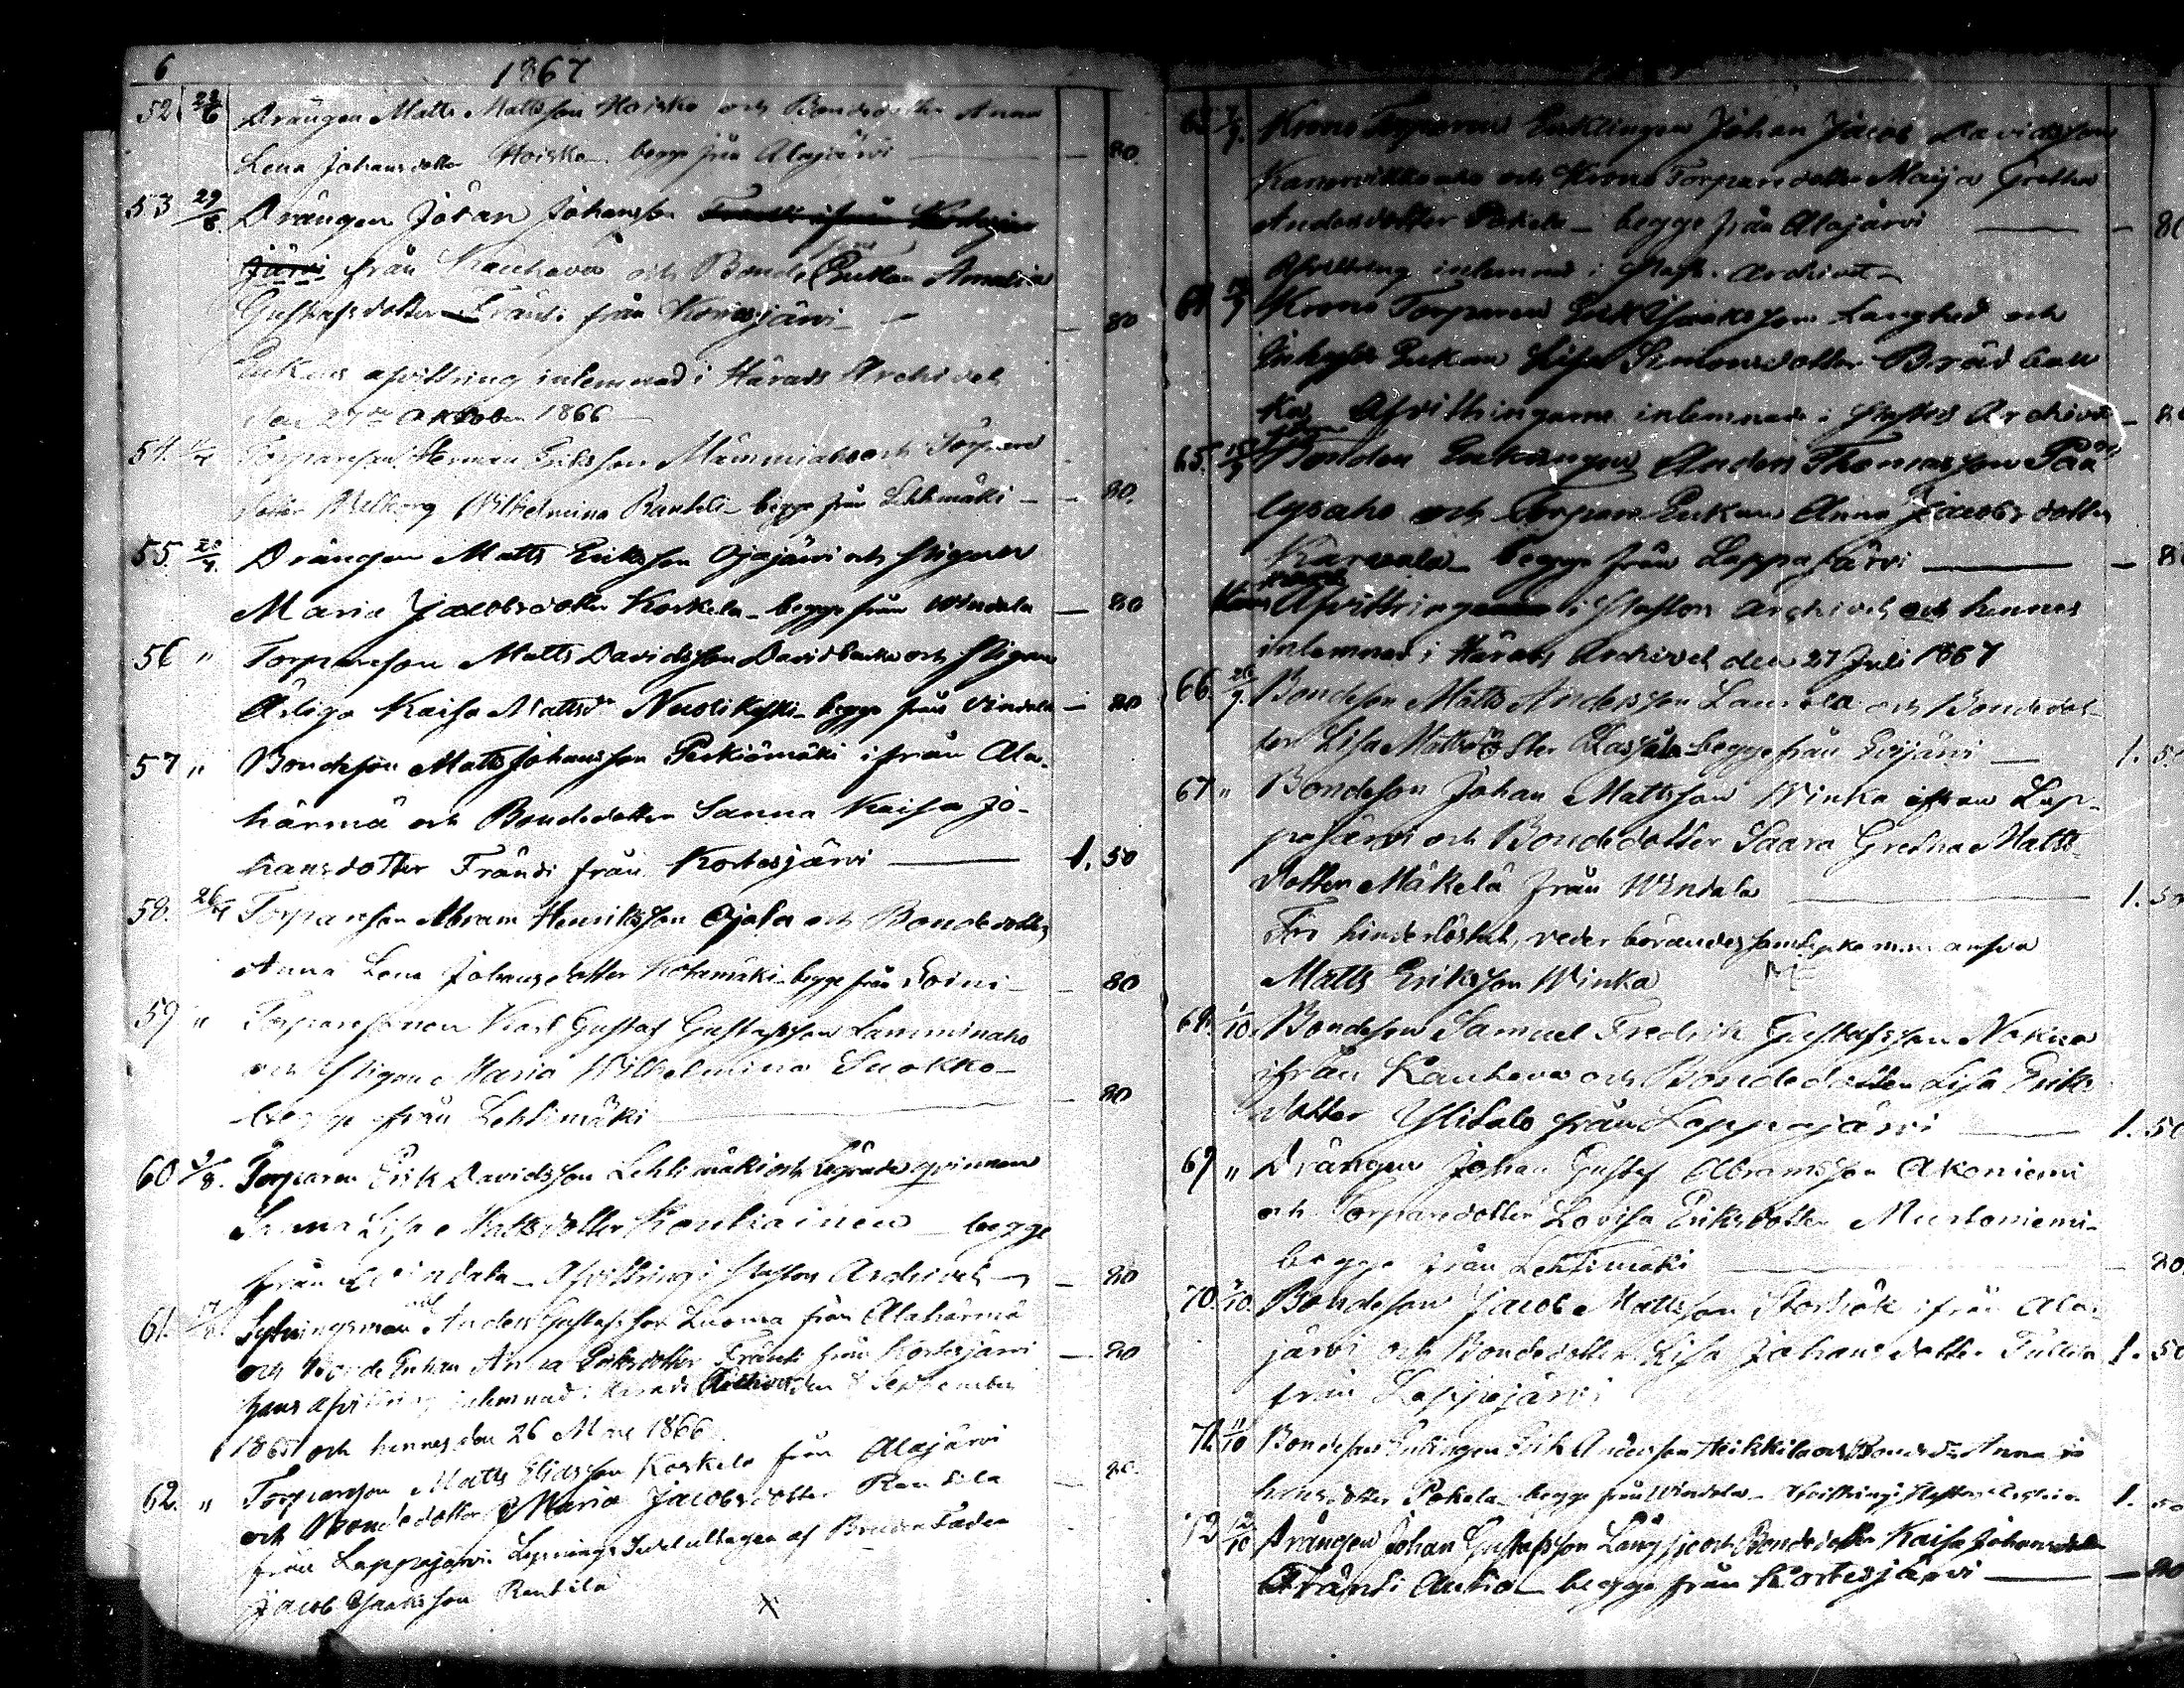 6 1867
52. 23/6 Drängen Matts Mattsson Hoiska och Bondedotter Anna
Lena Johansdotter Hoiska begge från Alajärvi — — 80.
53 29/6. Drängen Johan Johansson
järvi från Kauhava och Bonde Enkan Amalia
Gustafsdotter Frändi från Kortesjärvi — — 80
Enkans afvittring inlemnad i Härads Archivet
den 27de Oktober 1866
54. Torpareson Herman Eriksson Mämmiaho och Torpare
dotter Wilhelmina Rantala begge från Lehtimäki — — 80.
55. 20/7. Drängen Matts Eriksson Ojajärvi och Pigan
Maria Jacobsdotter Koskela — begge från Windala — 80
56 " Torpareson Matts Davidsson Davidbacka och Pigan
Ärliga Kaisa Mattsdr begge från Vindala — 80
57 " Bondeson Matts Johansson Perkiömäki ifrån Ala-
härmä och Bondedotter Sanna Kaisa Jo-
hansdotter Frändi från Kortesjärvi — 1. 50
58. 26/7 Torpareson Abram Henriksson Ojala och Bondedotter
Anna Lena Johansdotter Kotamäki begge från Soini — — 80
59 " Torparesonen Karl Gustaf Gustafsson Lamminaho
och Pigan Maria Wilhelmina Suokko —
begge från Lehtimäki — — 80
60 /8. Torparen Erik Davidsson Lehtimäki och qvinnan
Sanna Lisa Mattsdotter Kontiainen — begge
från Windala — Afvittring i Pastors Archivet — — 80
61. Sytningsman Anders Gustafsson Luoma från Alahärmä
och Bonde Enkan Anna Eriksdotter Frändi från Kortesjärvi — 80
hans afvittring inlemnad i Härads Archivet den 8 September
1865 och hennes den 26 Mars 1866
62. " Torpareson Matts Eliasson Koskela från Alajärvi — 80.
och Bondedotter Maria Jacobsdotter Rantala
från Lappajärvi. Lysnings uttagen af Brudens Fader
Jacob Isaksson Rantala
63 /7. Krono Torparen Enklingen Johan Jacob Davidsson
och Krono Torparedotter Maija Gretha
Andersdotter Pokela — begge från Alajärvi — — 80
Afvittring inlemnad i Past. Archivet —
64 /7 Krono Torparen Erik Isaksson Långhed och
Inhyses Enkan Lisa Simonsdotter Bräd bac
ka Afvittringarne inlemnade i Pastors Archivet — 80
65. /7 Bonden Enklingen Anders Thomasson Pää
lysaho och Torpare Enkan Anna Jacobsdotter
Karvala — begge från Lappajärvi — — 80
Hans Afvittring i Pastors Archivet och hennes
inlemnad i Härads Archivet den 27 Juli 1867
66. /9. Bondeson Matts Andersson Laurila och Bondedot-
ter Lisa Mattsdotter begge från Evijärvi — 1. 50
67 " Bondeson Johan Mattsson Winka ifrån Lap-
pajärvi och Bondedotter Saara Gretha Matts-
dotter Mäkelä från Windala — 1. 50
För hinderlöshet, vederbörandes samtycke m.m. ansvar
Matts Eriksson Winka
68. 1/10. Bondeson Samuel Fredrik Gustafsson Nokua
ifrån Kauhava och Bondedotter Lisa Eriks
dotter Ylitalo från Lappajärvi — 1. 50
69 " Drängen Johan Gustaf Abramsson Akoniemi
och Torparedotter Lovisa Eriksdotter Mustoniemi —
begge från Lehtimäki — — 80
70. /10. Bondeson Jacob Mattsson ifrån Ala-
järvi och Bondedotter Lisa Johansdotter 1. 50
från Lappajärvi
71. 11/10 Bondeson Enklingen Erik Andersson Heikkilä och Bondedr Anna Jo
hansdotter Pokela — begge från Windala — Afvittring i Pastors Archiv. 1. 50
72 12/10 Drängen Johan Gustafsson och Bondedotter Kaisa Johansdotter
Frändi — begge från Kortesjärvi — — 80